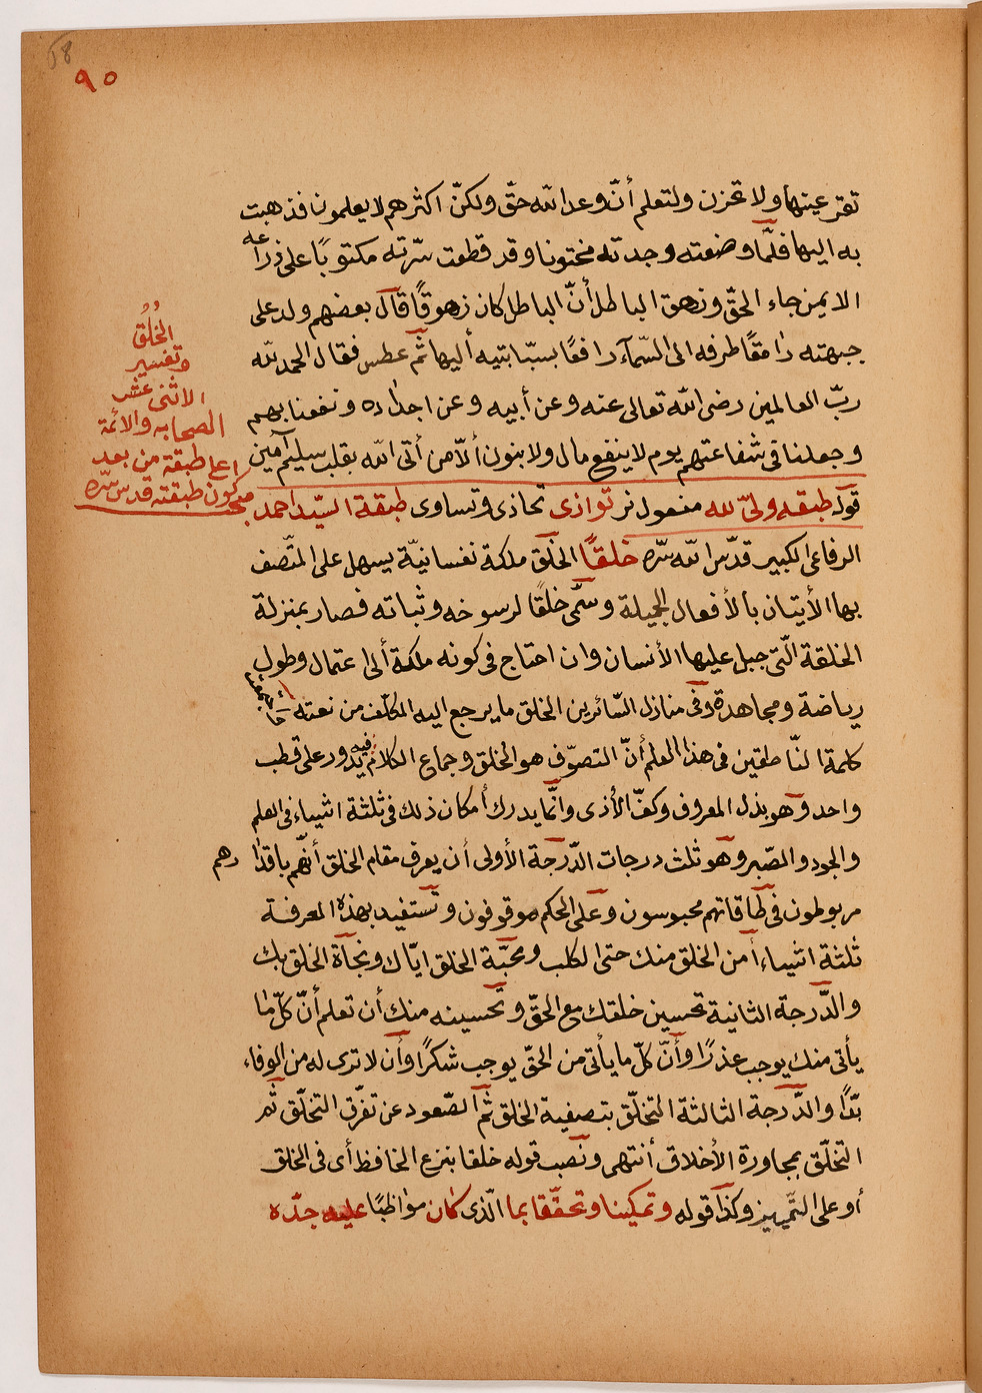 58
٩٥
تقر عينها ولا تحزن ولتعلم أنّ وعد الله حقّ ولكنّ اكثرهم لا يعلمون فذهبت
به اليها فلمّا وضعته وجدته مختونا وقد قطعت سرّته مكتوبًا على ذراعه
الايمن جاء الحقّ وزهق الباطل أنّ الباطل كان زهوقًا قال بعضهم ولد على
جبهته رامقًا طرفه الى السّمآء رافعًا بسبّابتيه أليها ثمّ عطس فقال الحمد لله
ربّ العالمين رضى الله تعالى عنه وعن أبيه وعن اجداده ونفعنا بهم
وجعلنا فى شفاعتهم يوم لا ينفع مال ولا بنون ألاّ من أتى الله بقلب سليم آمين
قوله طبقه ولىّ لله مفعول نر توازى تحاذى وتساوى طبقة السّيّد احمد
الرفاعى الكبير قدّس الله سرّه خلقًا الخلق ملكة نفسانيّة يسهل على المتّصف
بها الأيتان بالأفعال الجميلة وسمّى خلقًا لرسوخه وثباته فصار بمنزلة
الخلقة الّتى جبل عليها الأنسان وان احتاج فى كونه ملكة ألى اعتمال وطول
رياضة ومجاهدة وفى منازل السّائرين الخلق ما يرجع اليه المكلّف من نعته
كلمة النّاطقين فى هذا العلم أنّ التصوّف هو الخلق وجماع الكلام فيه يدور على قطب
واحد وهو بذل المعروف وكفّ الأذى وانّما يدرك أمكان ذلك فى ثلثة اشياء فى العلم
والجود والصّبر وهو ثلث درجات الدّرجة الأولى أن يعرف مقام الخلق أنّهم باقدارهم
مربوطون فى طاقاتهم محبوسون وعلى الحكم موقوفون وتستفيد بهذه المعرفة
ثلثة اشياء أمن الخلق منك حتى الكلب ومحبّة الخلق ايّاك ونجاة الخلق بك
والدّرجة الثانية تحسين خلقك مع الحقّ وتحسينه منك أن تعلم أنّ كلّ ما
يأتى منك يوجب عذرًا وأنّ كلّ ما يأتى من الحقّ يوجب شكرًا وأن لا ترى له من الوفاء
بدًّا والدّرجة الثالثة التخلّق بتصفية الخلق ثمّ الصّعود عن تفرّق التخلّق ثم
التخلّق بمجاورة الأخلاق أنتهى ونصب قوله خلقا بنزع الخافظ أى فى الخلق
أو على التّمييز وكذا قوله وتمكينا وتحقّقا بما الّذى كان مواظبًا عليه جدّه
الخُلُقُ
وتفسير
الاثنى عشر
الصحابه والائمّة
اعلى طبقة من بعد
كون طبقته قدس سرّه